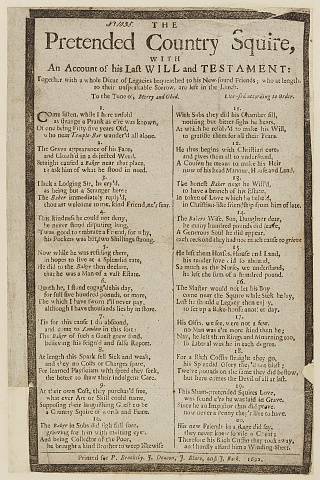 THE
Pretended Country Squire,
WITH
An Account of his Last WILL and TESTAMENT:
Together with a whole Dicar of Legacies bequeathed to his New-found Friends; who at length,
to their unspeakable Sorrow, are left in the Lurch.
To the Tune of,
1.
COme listen, while I here unfold
as strange a Prank as e'er was known,
Of one being Fifty-five years Old,
who near Temple-Bar wander'd all alone.
2.
The Grave appearance of his Face,
and Cloath'd in a dejected Weed,
Straight called a Baker near that place,
to ask him of what he stood in need.
3.
I lack a Lodging Sir, he cry'd,
as being but a Stranger here:
The Baker immediately reply'd,
thou art welcome to me, kind Friend,
4.
This kindness he could not deny,
he never stood disputing long,
'Twas good to embrace a Friend, for why,
his Pockets was but two Shillings strong.
5.
Now while he was refreshing there,
in hopes to live at a Splendid rate,
He did to the Baker then declare,
that he was a Man of a vast Estate.
6.
Quoth he, I spend
for full five hundred pounds, or more,
The which I have sworn I'll never part,
although I have thousands lies by in store.
7.
'Tis for this cause I do abscond,
and come to London in this sort:
The Baker of such a Guest grew fond,
believing his feigned and false Report.
8.
At length this Spark fell Sick and weak,
and they no Costs or Charges spare,
For learned Physicians with speed they seek,
the better to show their indulgent Care.
9.
At their own Cost, they purchas'd free,
what ever Art or Skill could name,
Supposing their languishing Guest to be
a Country Squire of worth and Fame.
10.
The Baker in Sobs did sigh full sore,
grieving for him with melting eye,
And being Collector of the Poor,
he brought a kind Brother to weep likewise
11.
With Sobs they did his Chamber fill,
nothing but bitter sighs he hears,
At which he resolv'd to make his Will,
to gratifie them for all their Tears.
12.
He thus begins with Christian care,
and gives them all to understand,
A Cousin he meant to make his Heir
now of his head Mannor, House and Land.
13.
The honest Baker next he Will'd,
to have a bench of his Estate,
In token of Love which he held,
in Christian-like friendship from him of late.
14.
The Bakers Wife, Son, Daughter dear,
he many hundred pounds did leave,
A Generous Soul he did appear,
each reckon'd they had no much cause to grieve
15.
He left them Houses, House and Land,
his tender love did so abound,
So much as the Monks we understand,
he left the sum of a hundred pound.
16.
The Master would not let his Boy
come near the Squire while Sick he lay,
Lest he should a Legacy then enjoy,
to set up a Bake-house another day.
17.
His Gifts, we see, were not a few,
no Man was e'er more kind than he;
Nay, he left them Rings and Mourning too,
so Liberal was he in each degree.
18.
For a Rich Coffin straight they go,
with Speed
Twelve pounds on the same they did bestow,
but here comes the Devil of all at last.
19.
This Sham-pretended Squires Love,
was found when he was laid in Grave,
Since he an Impostor then did prove,
now never a Penny they're like to have.
20.
His new Friends in a Rage did say,
they never knew so vile a Cheat;
Therefore his Rich Coffin they took away,
and hardly afford him a Winding-sheet.
Printed for P. Brooksby, J. Deacon, J. Blare, and J. Back. 1692.